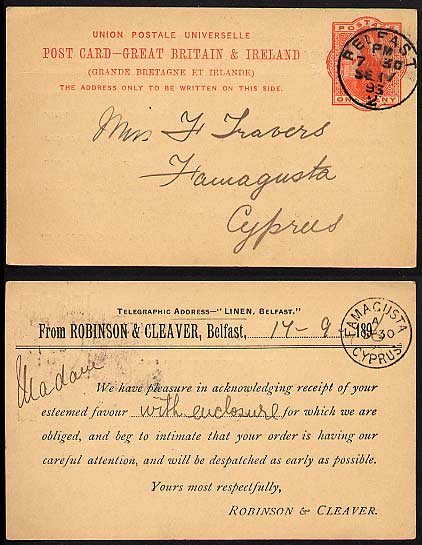 UNION POSTALE UNIVERSELLE
POST CARD—GREAT BRITAIN & IRELAND
(GRANDE BRETAGNE ET IRLANDE)
THE ADDRESS ONLY TO BE WRITTEN ON THIS SIDE.
POSTAGE
ONE PENNY
BELFAST
PM
7 30
SE 14
93
2
Miss F Travers
Famagusta
Cyprus
TELEGRAPHIC ADDRESS—"LINEN, BELFAST."
From ROBINSON & CLEAVER, Belfast, 14-9- 189
FAMAGUSTA
A
30
CYPRUS
Madam
We have pleasure in acknowledging receipt of your
esteemed favour with enclosure for which we are
obliged, and beg to intimate that your order is having our
careful attention, and will be despatched as early as possible.
Yours most respectfully,
ROBINSON & CLEAVER.